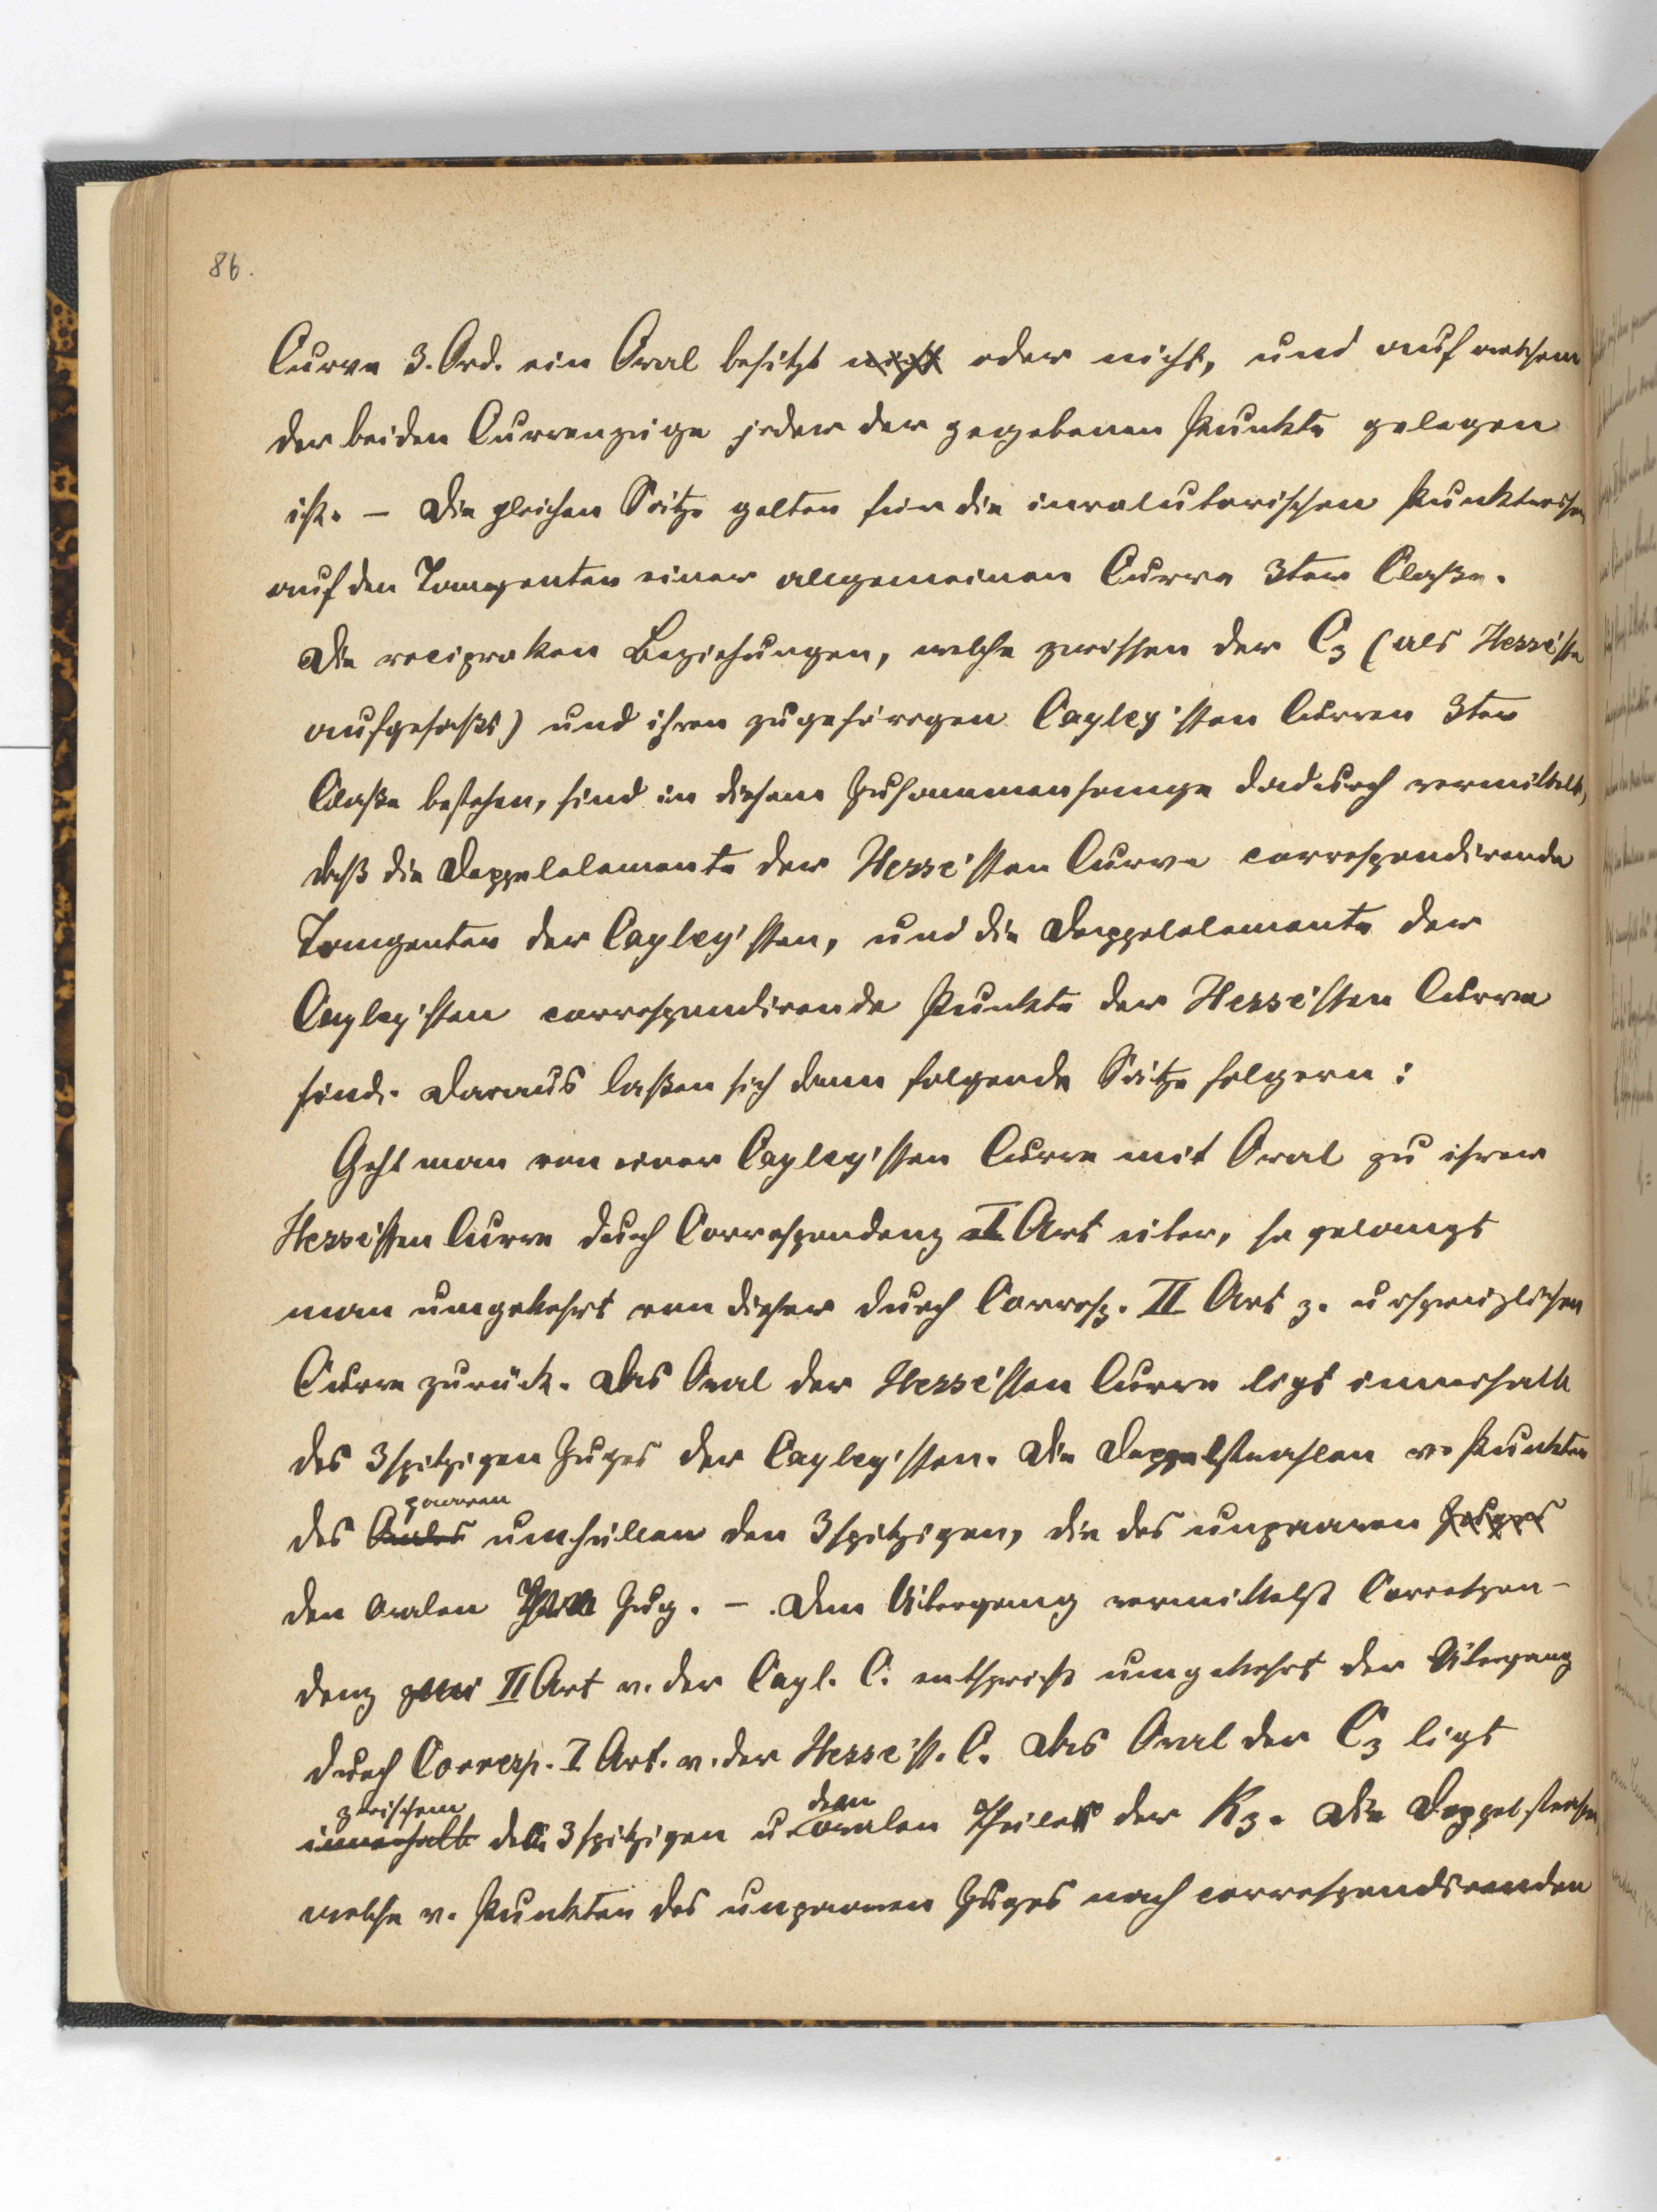 86.
Curve 3. Ord. ein Oval besitzt nicht oder nicht, und auf welchem
der beiden Curvenzüge jeder der gegebenen Punkte gelegen
ist. – Die gleichen Sätze gelten für die involutorischen Punktreihen
auf den Tangenten einer allgemeinen Curve 3ter Claße.
Die reciproken Beziehungen, welche zwischen der C3 (als Hesse'sche
aufgefaßt) und ihren zugehörigen Cayley'schen Curven 3ter
Claße bestehen, sind in diesem Zusammenhange dadurch vermittelt,
daß die Doppelelemente der Hesse'schen Curve correspondirende
Tangenten der Cayley'schen, und die Doppelelemente der
Cayley'schen correspondirende Punkte der Hesse'schen Curve
sind. Daraus laßen sich dann folgende Sätze folgern:
Geht man von einer Cayley'schen Curve mit Oval zu ihrer
Hesse'schen Curve durch Correspondenz I Art über, so gelangt
man umgekehrt von dieser durch Corresp. II Art z. ursprünglichen
Curve zurück. Das Oval der Hesse'schen Curve ligt innerhalb
des 3spitzigen Zuges der Cayley'schen. Die Doppelstrahlen v. Punkten
paaren
des Ovales umhüllen den 3spitzigen, die des unpaaren Zuges
den ovalen Zug. – Dem Übergang vermittelst Correspon-
denz II Art v. der Cayl. C. entspricht umgekehrt der Übergang
durch Corresp. I Art. v. der Hesse'sch. C. Das Oval der C3 ligt
zwischen dem
innerhalb 3spitzigen u. ovalen Theile der K3. Die Doppelstrahlen,
welche v. Punkten des unpaaren Zuges nach correspondirenden